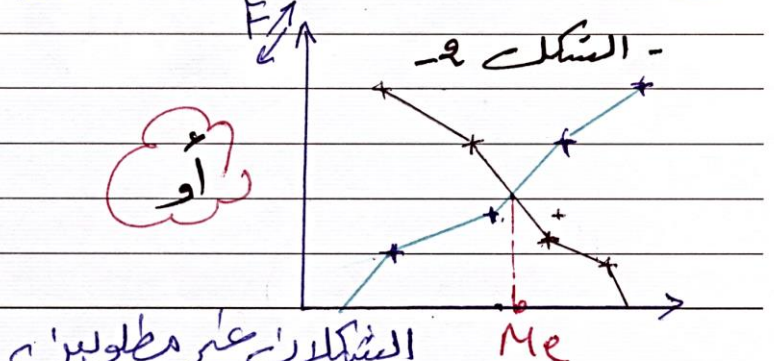 F
- الشكل 2 -
أو
Me
الشكلان غير مطلوبين